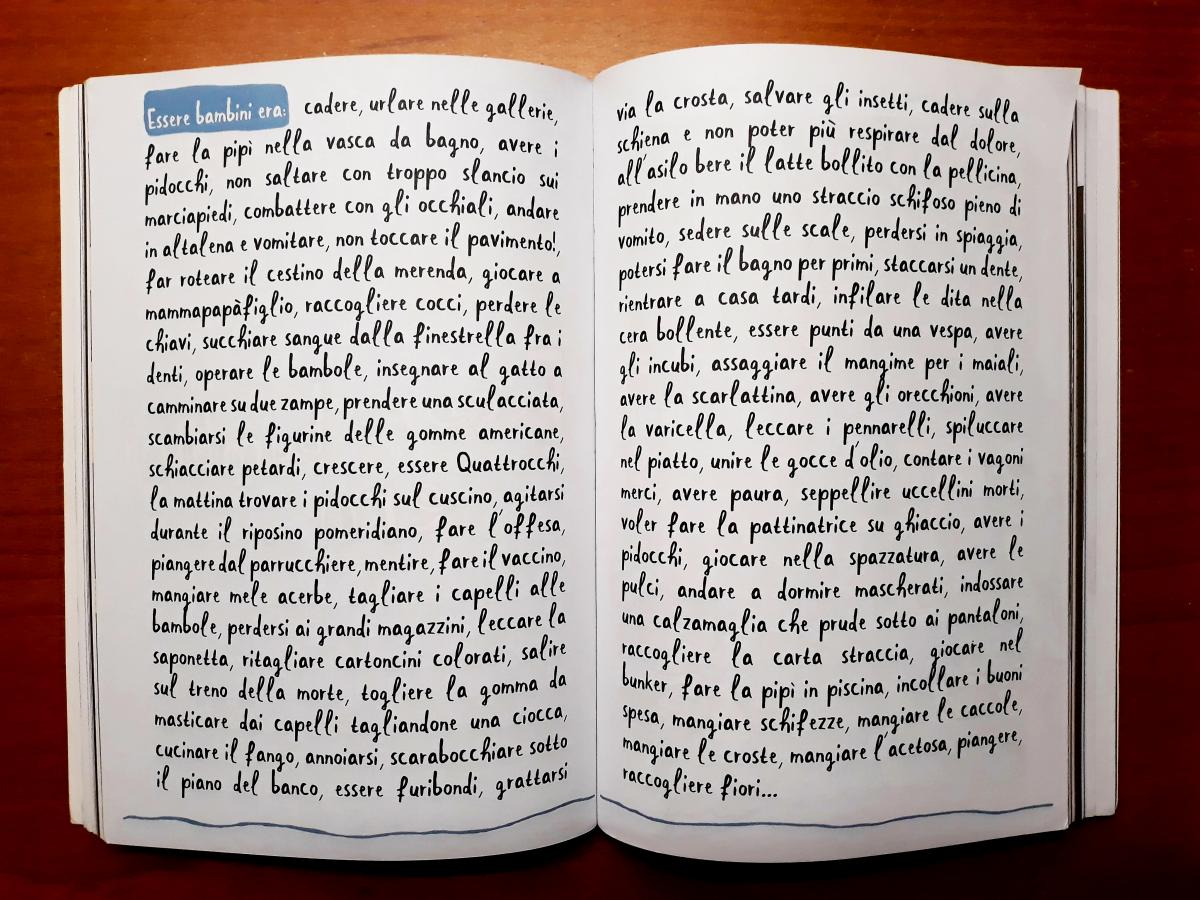 Essere bambini era: cadere, urlare nelle gallerie,
fare la pipì nella vasca da bagno, avere i
pidocchi, non saltare con troppo slancio sui
marciapiedi, combattere con gli occhiali, andare
in altalena e vomitare, non toccare il pavimento!,
far roteare il cestino della merenda, giocare a
mammapapàfiglio, raccogliere cocci, perdere le
chiavi, succhiare sangue dalla finestrella fra i
denti, operare le bambole, insegnare al gatto a
camminare su due zampe, prendere una sculacciata,
scambiarsi le figurine delle gomme americane,
schiacciare petardi, crescere, essere Quattrocchi,
la mattina trovare i pidocchi sul cuscino, agitarsi
durante il riposino pomeridiano, fare l'offesa,
piangere dal parrucchiere, mentire, fare il vaccino,
mangiare mele acerbe, tagliare i capelli alle
bambole, perdersi ai grandi magazzini, leccare la
saponetta, ritagliare cartoncini colorati, salire
sul treno della morte, togliere la gomma da
masticare dai capelli tagliandone una ciocca,
cucinare il fango, annoiarsi, scarabocchiare sotto
il piano del banco, essere furibondi, grattarsi
via la crosta, salvare gli insetti, cadere sulla
schiena e non poter più respirare dal dolore,
all'asilo bere il latte bollito con la pellicina,
prendere in mano uno straccio schifoso pieno di
vomito, sedere sulle scale, perdersi in spiaggia,
potersi fare il bagno per primi, staccarsi un dente,
rientrare a casa tardi, infilare le dita nella
cera bollente, essere punti da una vespa, avere
gli incubi, assaggiare il mangime per i maiali,
avere la scarlattina, avere gli orecchioni, avere
la varicella, leccare i pennarelli, spiluccare
nel piatto, unire le gocce d'olio, contare i vagoni
merci, avere paura, seppellire uccellini morti,
voler fare la pattinatrice su ghiaccio, avere i
pidocchi, giocare nella spazzatura, avere le
pulci, andare a dormire mascherati, indossare
una calzamaglia che prude sotto ai pantaloni,
raccogliere la carta straccia, giocare nel
bunker, fare la pipì in piscina, incollare i buoni
spesa, mangiare schifezze, mangiare le caccole,
mangiare le croste, mangiare l'acetosa, piangere,
raccogliere fiori...